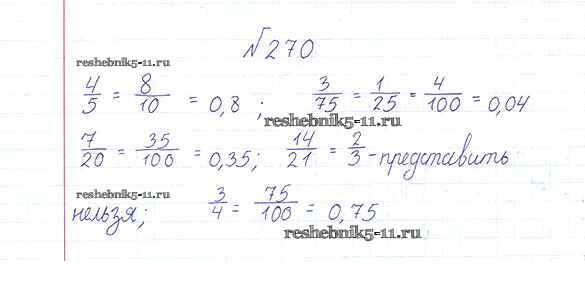 №270
reshebnik5-11.ru
4/5 = 8/10 = 0,8 ; 3/75 = 1/25 = 4/100 = 0,04
reshebnik5-11.ru
7/20 = 35/100 = 0,35; 14/21 = 2/3 - представить
reshebnik5-11.ru
нельзя; 3/4 = 75/100 = 0,75
reshebnik5-11.ru